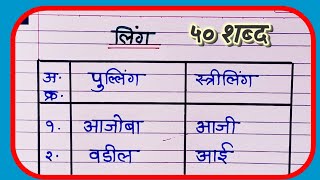 लिंग ५० शब्द
अ. क्र. पुल्लिंग स्त्रीलिंग
१. आजोबा आजी
२. वडील आई